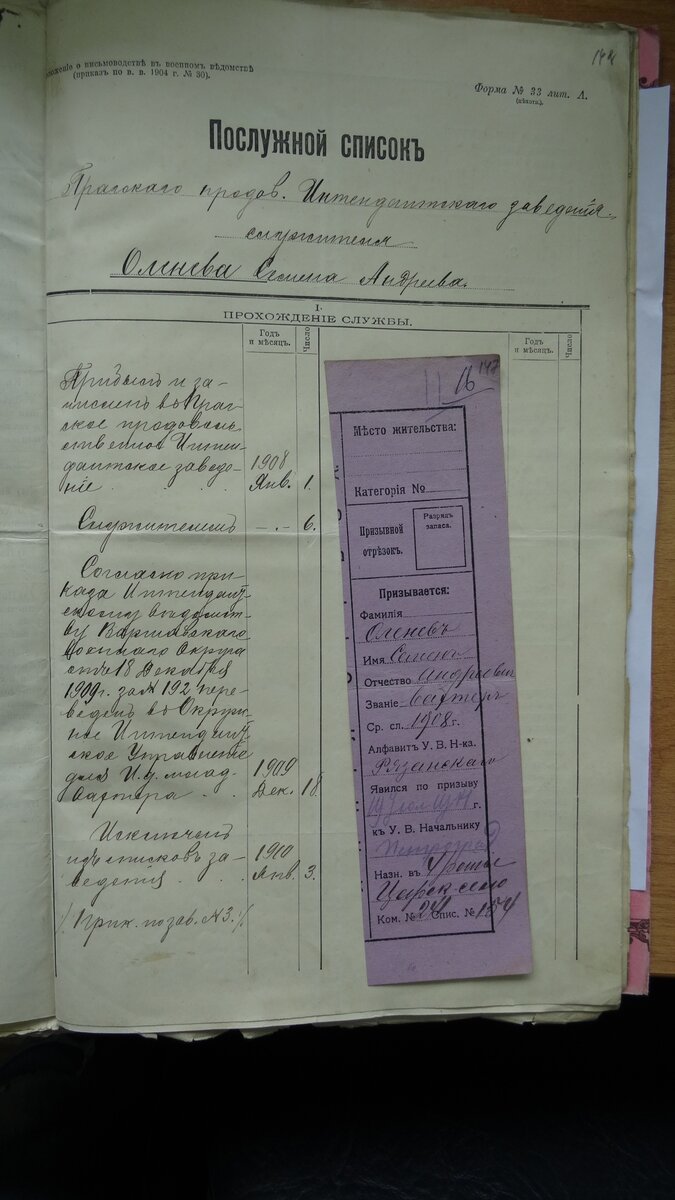 оженіе о письмоводствѣ въ военномъ вѣдомствѣ
(приказъ по в. в. 1904 г. № 30).
Форма № 33 лит. А.
(пѣхотн.).
Послужной списокъ
Прагскаго продов. Интендантскаго заведенія
служителя
Оленева Семена Андреева.
I.
ПРОХОЖДЕНІЕ СЛУЖБЫ.
Годъ и мѣсяцъ.
Число
Годъ и мѣсяцъ.
Число
Прибылъ и за-
численъ въ Праг-
ское продоволь-
ственное Интен-
дантское заведе-
ніе 1908 Янв. 1.
Служителемъ -.- 6.
Согласно при-
каза Интендант-
скому вѣдомст-
ву Варшавскаго
Военнаго Округа
отъ 18 Декабря
1909 г. за № 192 пере-
веденъ въ Окруж-
ное Интендант-
ское Управленіе
для И. д. млад.
вахтера 1909 Дек. 18
Исключенъ
изъ списковъ за-
веденія 1910 Янв. 3.
/. Прик. по зав. № 3. /.
147
16
Мѣсто жительства:
Категорія №
Призывной отрѣзокъ.
Разрядъ запаса.
Призывается:
Фамилія
Оленевъ
Имя Семенъ
Отчество Андреевич
Званіе вахтеръ
Ср. сл. 1908 г.
Алфавитъ У. В. Н-ка.
Рязанскаго
Явился по призыву
г.
къ У. В. Начальнику
Петроград
Назн. въ
Царск-село
Ком. № 24 Спис. № 154